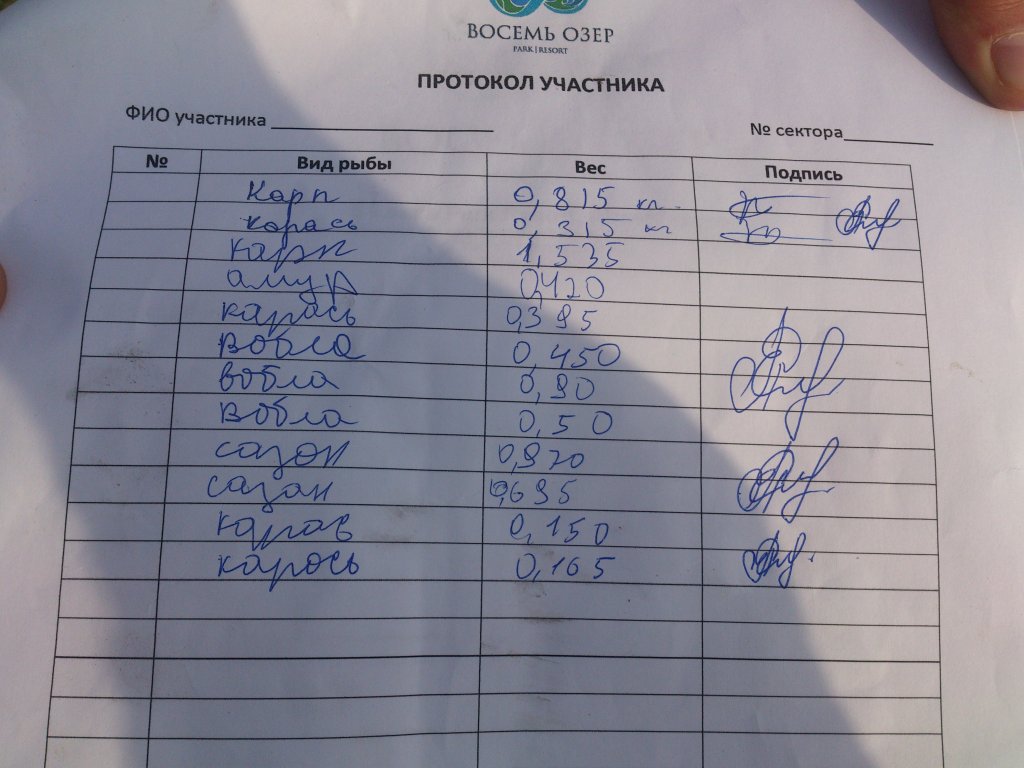 ВОСЕМЬ ОЗЕР
PARK | RESORT
ПРОТОКОЛ УЧАСТНИКА
ФИО участника
№ сектора
№ Вид рыбы Вес Подпись
Карп 0,815 кг.
карась 0,315 кг
карп 1,535
амур 0,420
карась 0,395
вобла 0,450
вобла 0,90
вобла 0,50
сазан 0,920
сазан 0,695
0,150
карась 0,165